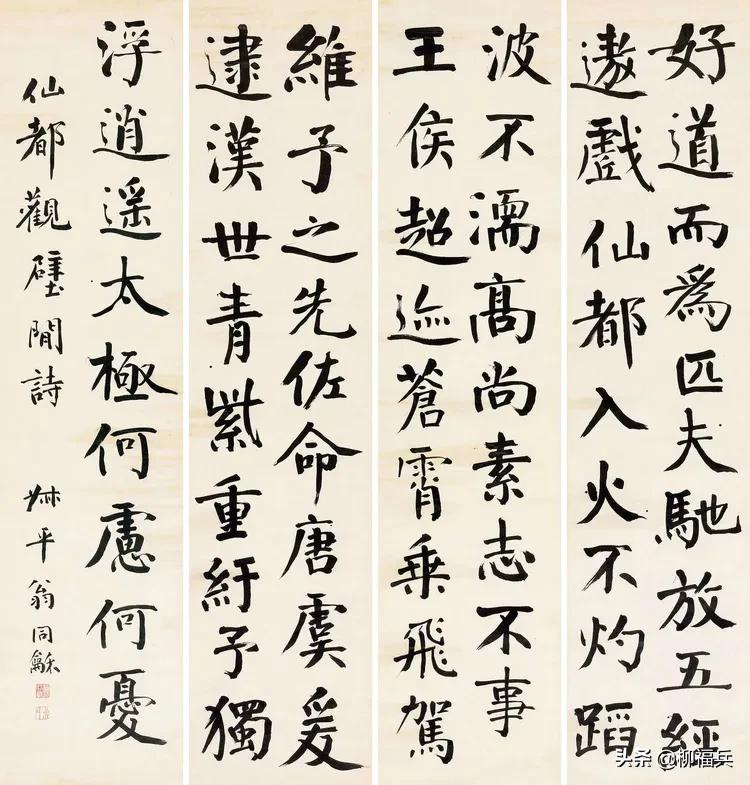 好道而爲匹夫馳放五經
遨戲仙都入火不灼蹈
波不濡髙尚素志不事
王侯超迹蒼霄乗飛駕
維予之先佐命唐虞爰
逮漢世青紫重紆予獨
浮逍遥太極何慮何憂
仙都觀壁間詩
叔平翁同龢
头条 @柳福兵